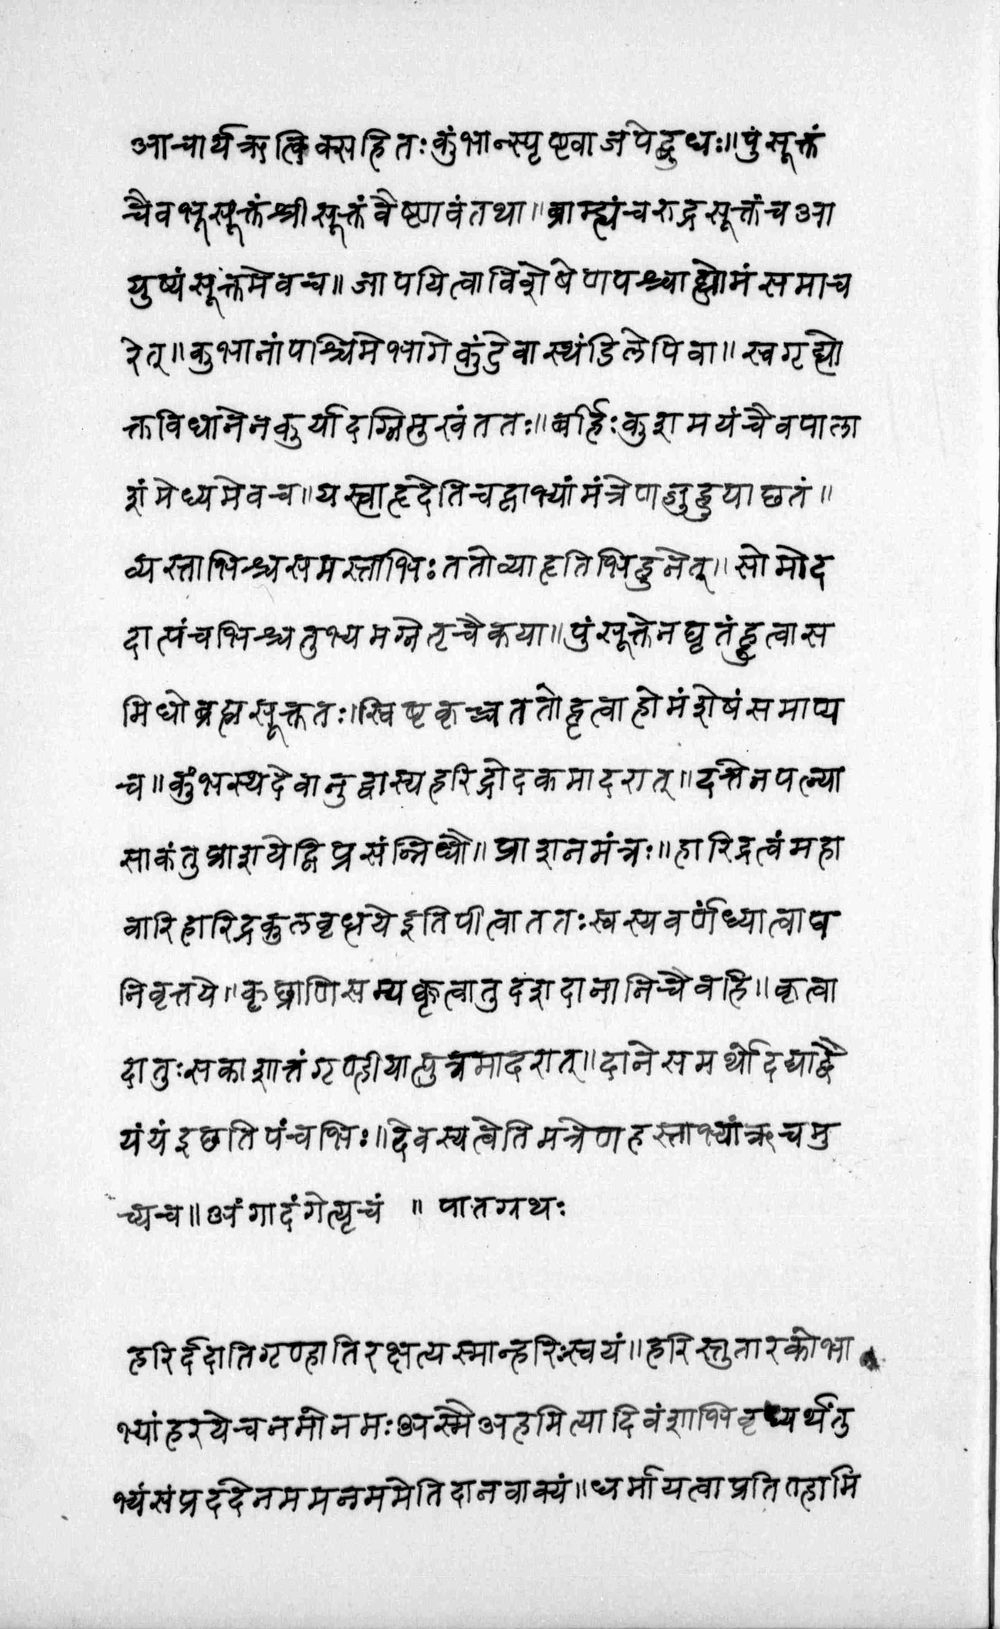 आचार्यऋत्विक्सहितःकुंभान्स्पृष्ट्वाजपेद्बुधः॥पुंसूक्तं
चैवभूसूक्तंश्रीसूक्तंवैष्णवंतथा॥ब्राम्ह्यंचरुद्रसूक्तंचआ
युष्यंसूक्तमेवच॥जापयित्वाविशेषेणपश्चाद्धोमंसमाच
रेत्॥कुभानांपाश्चिमेभागेकुंडेवास्थंडिलेपिवा॥स्वगृह्यो
क्तविधानेनकुर्यादग्निमुखंततः॥बर्हिःकुशमयंचैवपाला
शंमेध्यमेवच॥यस्त्वाहृदेतिचद्वाभ्यांमंत्रेणजुहुयाछतं॥
व्यस्ताभिश्चसमस्ताभिःततोव्याहृतिभिर्हुनेत्॥सोमोद
दात्पंचभिश्चतुभ्यमग्नेतृचैकया॥पुंसूक्तेनघृतंहुत्वास
मिधोब्रह्मसूक्ततः॥स्विष्टकृच्चततोहृत्वाहोमंशेषंसमाप्य
च॥कुंभस्थदेवानुद्वास्यहरिद्रोदकमादरात्॥दत्तेनपत्न्या
साकंतुप्राशयेद्विप्रसंन्निधौ॥प्राशनमंत्रः॥हारिद्रत्वंमहा
वारिहारिद्रकुलवृध्दयेइतिपीत्वाततःस्वस्यवर्णंध्यात्वाघ
निवृत्तये॥कृछ्राणिसम्यक्कृत्वातुदशदानानिचैवहि॥कृत्वा
दातुःसकाशात्तंगृण्हीयात्पुत्रमादरात्॥दानेसमर्थोदद्याद्वै
यंयंइछतिपंचभिः॥देवस्यत्वेतिमंत्रेणहस्ताभ्यांऋचमु
च्यच॥अंगादंगेत्यृचं ॥ पातगाथः
हरिर्ददातिगृण्हातिरक्षत्यस्मान्हरिःस्वयं॥हरिस्तुतारकोभा
भ्यांहरयेचनमोनमःअस्मैअहमित्यादिवंशाभिवृध्यर्थंतु
भ्यंसंप्रददेनममनममेतिदानवाक्यं॥धर्मायत्वाप्रतिगह्णामि